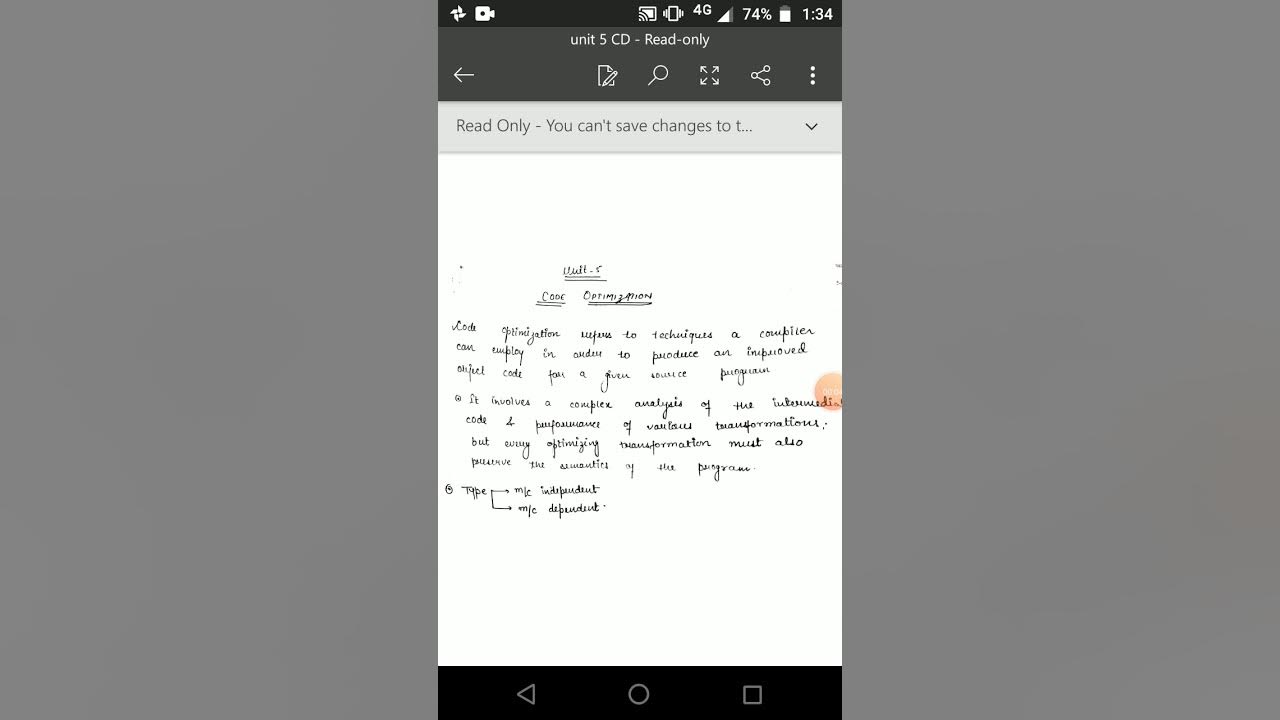 4G 74% 1:34
unit 5 CD - Read-only
Read Only - You can't save changes to t...
Unit-5
CODE OPTIMIZATION
Code optimization refers to techniques a compiler
can employ in order to produce an improved
object code for a given source program
It involves a complex analysis of the intermediat
code & performance of various transformations,
but every optimizing transformation must also
preserve the semantics of the program.
Type → m/c independent
→ m/c dependent.